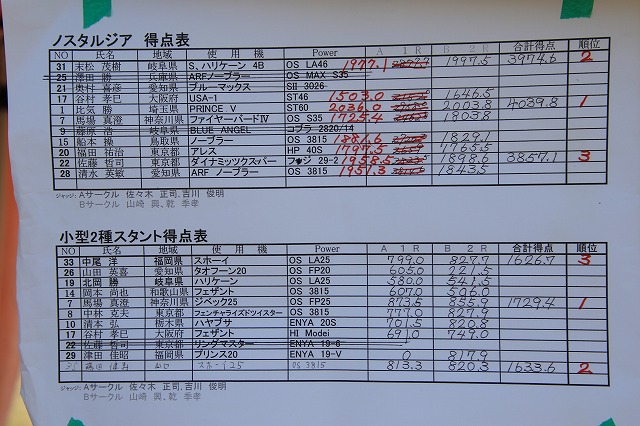 ノスタルジア 得点表
NO 氏名 地域 使用機 Power A 1R B 2R 合計得点 順位
31 末松 茂樹 岐阜県 S、ハリケーン 4B OS LA46 1977.1 1997.5 3974.6 2
25 澤田 勝 兵庫県 ARFノーブラー OS MAX S35
21 奥村 喜彦 愛知県 ブルーマックス SII 3026
17 谷村 孝巳 大阪府 USA-1 ST46 1503.0 1646.5
1 比気 勝 埼玉県 PRINCE V ST60 2036.0 2003.8 4039.8 1
7 馬場 真澄 神奈川県 ファイヤーバードⅣ OS S35 1725.4 1803.8
9 藤原 浩 岐阜県 BLUE ANGEL コブラ 2820/14
15 船本 操 鳥取県 ノーブラー OS 3815 1881.6 1829.1
20 福田 祐治 東京都 アレス HP 40S 1797.5 1765.5
22 佐藤 哲司 東京都 ダイナミックスバー フジ 29-2 1958.5 1898.6 3857.1 3
28 清水 英敏 愛知県 ARF ノーブラー OS 3815 1951.3 1843.5
ジャッジ: Aサークル 佐々木 正司,吉川 俊明
Bサークル 山崎 興、乾 季孝
小型2種スタント得点表
NO 氏名 地域 使用機 Power A 1R B 2R 合計得点 順位
33 中尾 洋 福岡県 スホーイ OS LA25 799.0 827.7 1626.7 3
26 山田 英喜 愛知県 タオフーン20 OS FP20 605.0 221.5
19 北岡 勝 岐阜県 ハリケーン OS LA25 580.0 541.5
14 岡本 尚也 和歌山県 フェザント OS 3815 607.0 506.0
7 馬場 真澄 神奈川県 ジベック25 OS FP25 873.5 855.9 1729.4 1
8 中林 克夫 東京都 フェンチャライズドツイスター OS 3815 777.0 827.9
10 清本 弘 栃木県 ハヤブサ ENYA 20S 701.5 820.8
17 谷村 孝巳 大阪府 フェザント HI Modei 691.0 749.0
22 佐藤 哲司 東京都 リングマスター ENYA 19-6
29 津田 佳昭 福岡県 プリンス20 ENYA 19-V 0 817.9
スホーイ25 OS 3815 813.3 820.3 1633.6 2
ジャッジ: Aサークル 佐々木 正司,吉川 俊明
Bサークル 山崎 興、乾 季孝